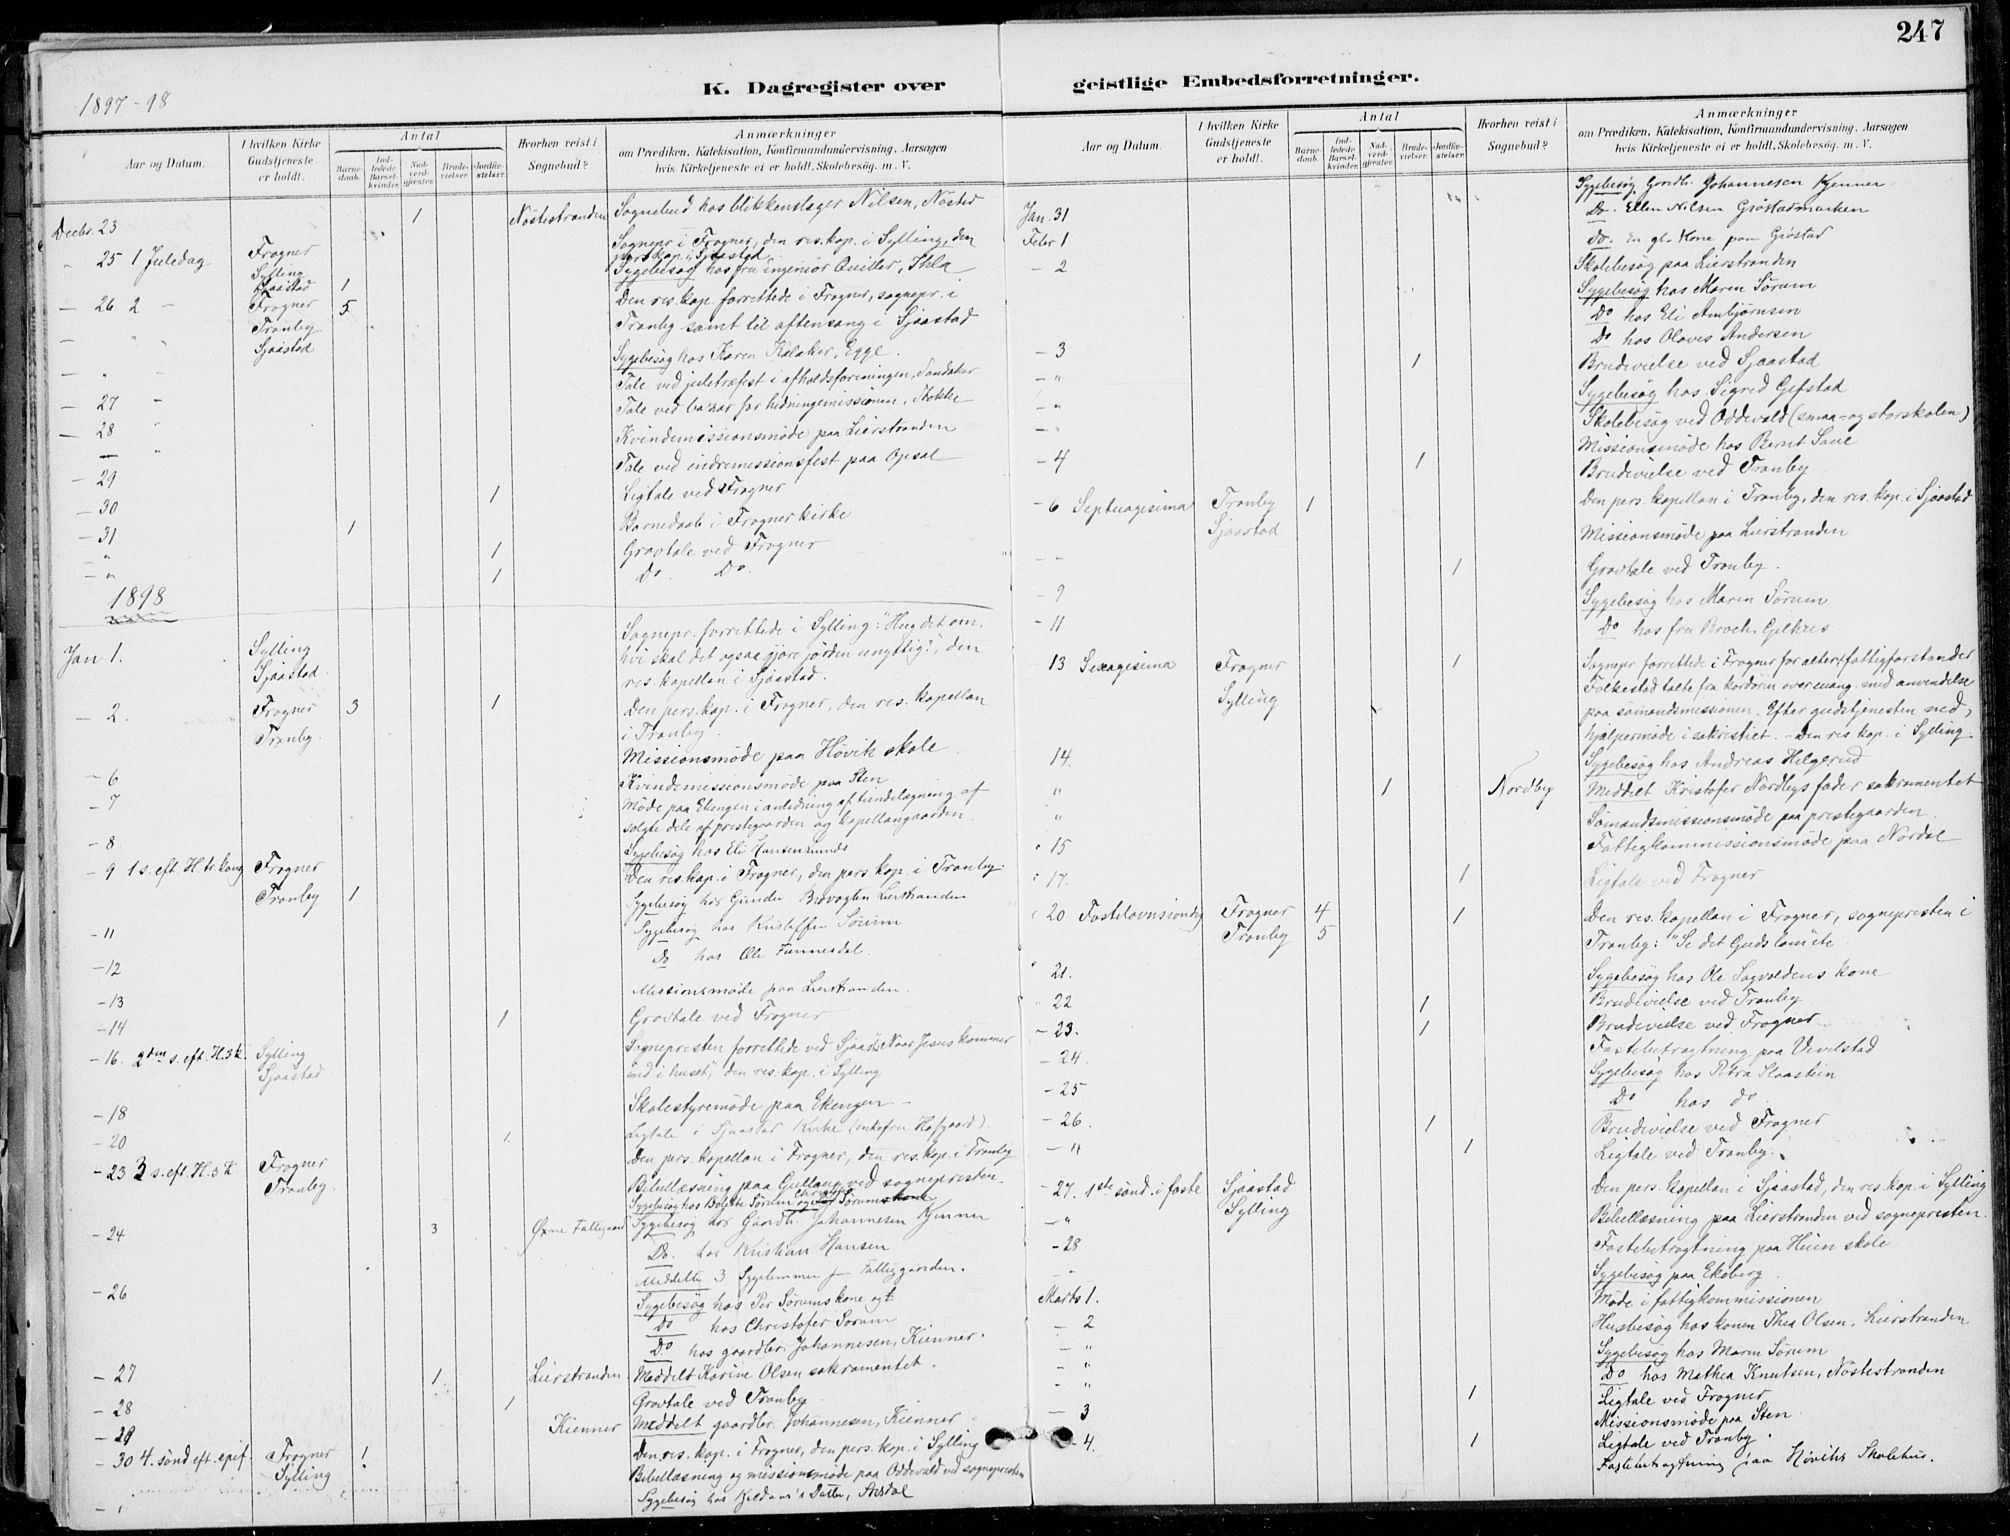 247
K. Dagregister over geistlige Embedsforretninger.
1897-98
Aar og Datum.
I hvilken Kirke Gudstjeneste er holdt.
Antal
Barnedaab.
Indledede Barselkvinder.
Nadverdgjester.
Brudevielser.
Jordfæstelser.
Hvorhen reist i Sognebud?
Anmærkninger
om Prædiken, Katekisation, Konfirmandundervisning. Aarsagen
hvis Kirketjeneste ei er holdt. Skolebesøg. m. V.
Decbr. 23 1 Nöstestranden Sognebud hos blikkenslager Nilsen, Nösted
" 25 1 Juledag Frogner Sognepr. i Frogner, den res. kap. i Sylling, den
Sylling pers. kap. i Sjaastad
Sjaastad 1 Sygebesøg hos fru ingeniør Quiller,
– 26 2 – Frogner 5 Den res. kap. forrettede i Frogner, sognepr. i
Tranby Tranby samt til aftensang i Sjaastad
Sjaastad
Sygebesøg hos Karen Kalaker, Egge.
Tale ved juletræfest i afholdsforeningen,
– 27 Tale ved bazar for hedningemissionen, Stokke
– 28 Kvindemissionsmøde paa Lierstranden
Tale ved indremissionsfest paa Opsal
– 29
– 30 1 Ligtale ved Frogner
– 31 1 Barnedaab i Frogner kirke
– " 1 Gravtale ved Frogner
– " 1 Do. Do.
1898
Jan 1. Sylling Sognepr. forrettede i Sylling: "Hug det om,
Sjaastad hvi skal det ogsaa gjøre jorden unyttig?", den
res. kapellan i Sjaastad.
– 2. Frogner 3 1 Den pers. kap. i Frogner, den res. kapellan
Tranby. i Tranby.
Missionsmøde paa Høvik skole
– 6 Kvindemissionsmøde paa Sten
– 7 Møde paa Ekengen i anledning af tiendelægning af
solgte dele af prestegaarden og kapellangaarden.
– 8 Sygebesøg hos Eli
– 9 1 s. eft. H. tr. kong Frogner Den res. kap. i Frogner, den pers. kap. i Tranby.
Tranby 1 Sygebesøg hos Gunder Brovogten Lierstranden
– 11 Sygebesøg hos Kristoffer Sørum
– 12 Do hos Ole
– 13 Missionsmøde paa Lierstranden.
– 14 1 Gravtale ved Frogner
– 16. 2den s. eft. H. 3 k. Sylling Sognepresten forrettede ved Sjaast. "Naar Jesus kommer
Sjaastad ind i huset", den res. kap. i Sylling
– 18 Skolestyremøde paa Ekengen –
– 20 1 Ligtale i Sjaastad Kirke (enkefru Hofgaard)
– 23 3 s. eft. H. 3 K Frogner Den pers. kapellan i Frogner, den res. kap. i Tranby
Tranby. Bibellæsning paa Gullaug ved sognepresten.
Sygebesøg hos Bolette Sørum og Sørums kone
– 24 3 Øvre Fattiggaard Sygebesøg hos Gaardbr. Johannesen Kjenner
Do. hos Kristian Hansen
Meddelte 3 Sygelemmer paa Fattiggaarden.
– 26 Sygebesøg hos Per Sørums kone
Do hos Christofer Sørum
Do hos gaardbr. Johannesen, Kienner.
– 27 1 Lierstranden Meddelt Karine Olsen sakramentet.
– 28 1 Gravtale ved Tranby
– 29 Kienner Meddelt gaardbr. Johannesen, Kienner
– 30 4. sønd eft. epif. Frogner 1 Den res. kap. i Frogner, den pers. kap. i Sylling
Sylling Bibellæsning og missionsmøde paa Oddevald ved sognepresten
Sygebesøg hos Datter,
Aar og Datum.
I hvilken Kirke Gudstjeneste er holdt.
Antal
Barnedaab.
Indledede Barselkvinder.
Nadverdgjester.
Brudevielser.
Jordfæstelser.
Hvorhen reist i Sognebud?
Anmærkninger
om Prædiken, Katekisation, Konfirmandundervisning. Aarsagen
hvis Kirketjeneste ei er holdt. Skolebesøg. m. V.
Sygebesøg, Gaardbr. Johannesen Kjenner
Jan. 31 Do. Ellen Nilsen Gröstadmarken
Febr 1 Do. En gl. Kone paa Gröstad
– 2 Skolebesøg paa Lierstranden
Sygebesøg hos Maren Sørum
Do hos Eli Arnbjørnsen
Do hos Olaves Andersen
– 3 1 Brudevielse ved Sjaastad
– " Sygebesøg hos Sigred Gifstad
– " Skolebesøg ved Oddevald (smaa- og storskolen)
– " Missionsmøde hos Bernt
– 4 1 Brudevielse ved Tranby
– 6 Septuagesima Tranby 1 Den pers. kapellan i Tranby, den res. kap. i Sjaastad
Sjaastad Missionsmøde paa Lierstranden
– – 1 Gravtale ved Tranby.
– 9 Sygebesøg hos Maren Sørum
– 11 Do hos fru Broch,
– 13 Sexagesima Frogner 1 Sognepr. forrettede i Frogner for alter, fattigforstander
Sylling Folkestad talte fra kordøren over evang. med anvendelse
paa sømandsmissionen. Efter gudstjenesten ned,
hjælpermøde i sakristiet. – Den res kap. i Sylling.
14. Sygebesøg hos Andreas Helgerud
" 1 Nordby Meddelt Kristofer Nordbys fader sakramentet
" Sømandsmissionsmøde paa prestegaarden.
" 15 Fattigkommissionsmøde paa Nordal
" 17. 1 Ligtale ved Frogner
" 20 Fastelavnssøndag Frogner 4 1 Den res. kapellan i Frogner, sognepresten i
Tranby 5 Tranby: "Se det Guds lam" etc
" 21. Sygebesøg hos Ole Sagvoldens kone
" 22 1 Brudevielse ved Tranby
– 23. 1 Brudevielse ved Frogner
– 24. Fastebetragtning paa Vevelstad
– 25 Sygebesøg hos Petra
Do hos do
– 26. 1 Brudevielse ved Frogner
– " 1 Ligtale ved Tranby.
– 27. 1ste sønd. i faste Sjaastad Den pers. kapellan i Sjaastad, den res. kap. i Sylling
Sylling Bibellæsning paa Lierstranden ved sognepresten.
– "
– 28 Fastebetragtning paa Heien skole
– " Sygebesøg paa Ekeberg
Marts 1. Møde i fattigkommissionen
– 2 Husbesøg hos konen Thea Olsen, Lierstranden
– " Sygebesøg hos Maren Sørum
– " Do hos Mathea Knutsen, Nöstestranden
– " 1 Ligtale ved Frogner
– 3 Missionsmøde paa Sten
– 4. 1 Ligtale ved Tranby.
Fastebetragtning paa Høviks Skolehus.